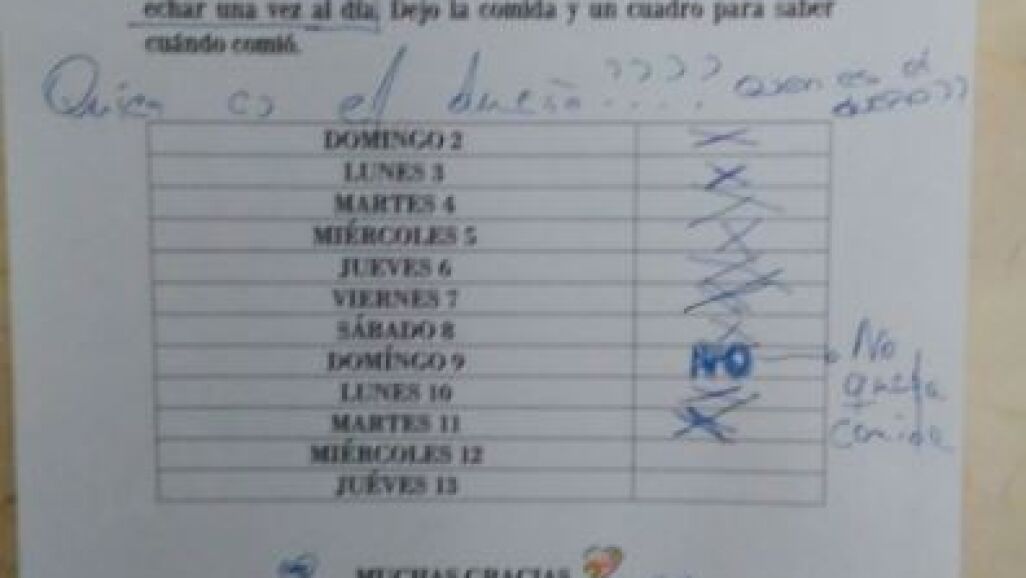 echar una vez al día. Dejo la comida y un cuadro para saber
cuándo comió.
Quien es el dueño ????
Quien es el dueño??
DOMINGO 2 X
LUNES 3 X
MARTES 4 X
MIÉRCOLES 5 X
JUEVES 6 X
VIERNES 7 X
SÁBADO 8 X
DOMÍNGO 9 NO
No queda comida
LUNES 10 X
MARTES 11 X
MIÉRCOLES 12
JUÉVES 13
MUCHAS GRACIAS